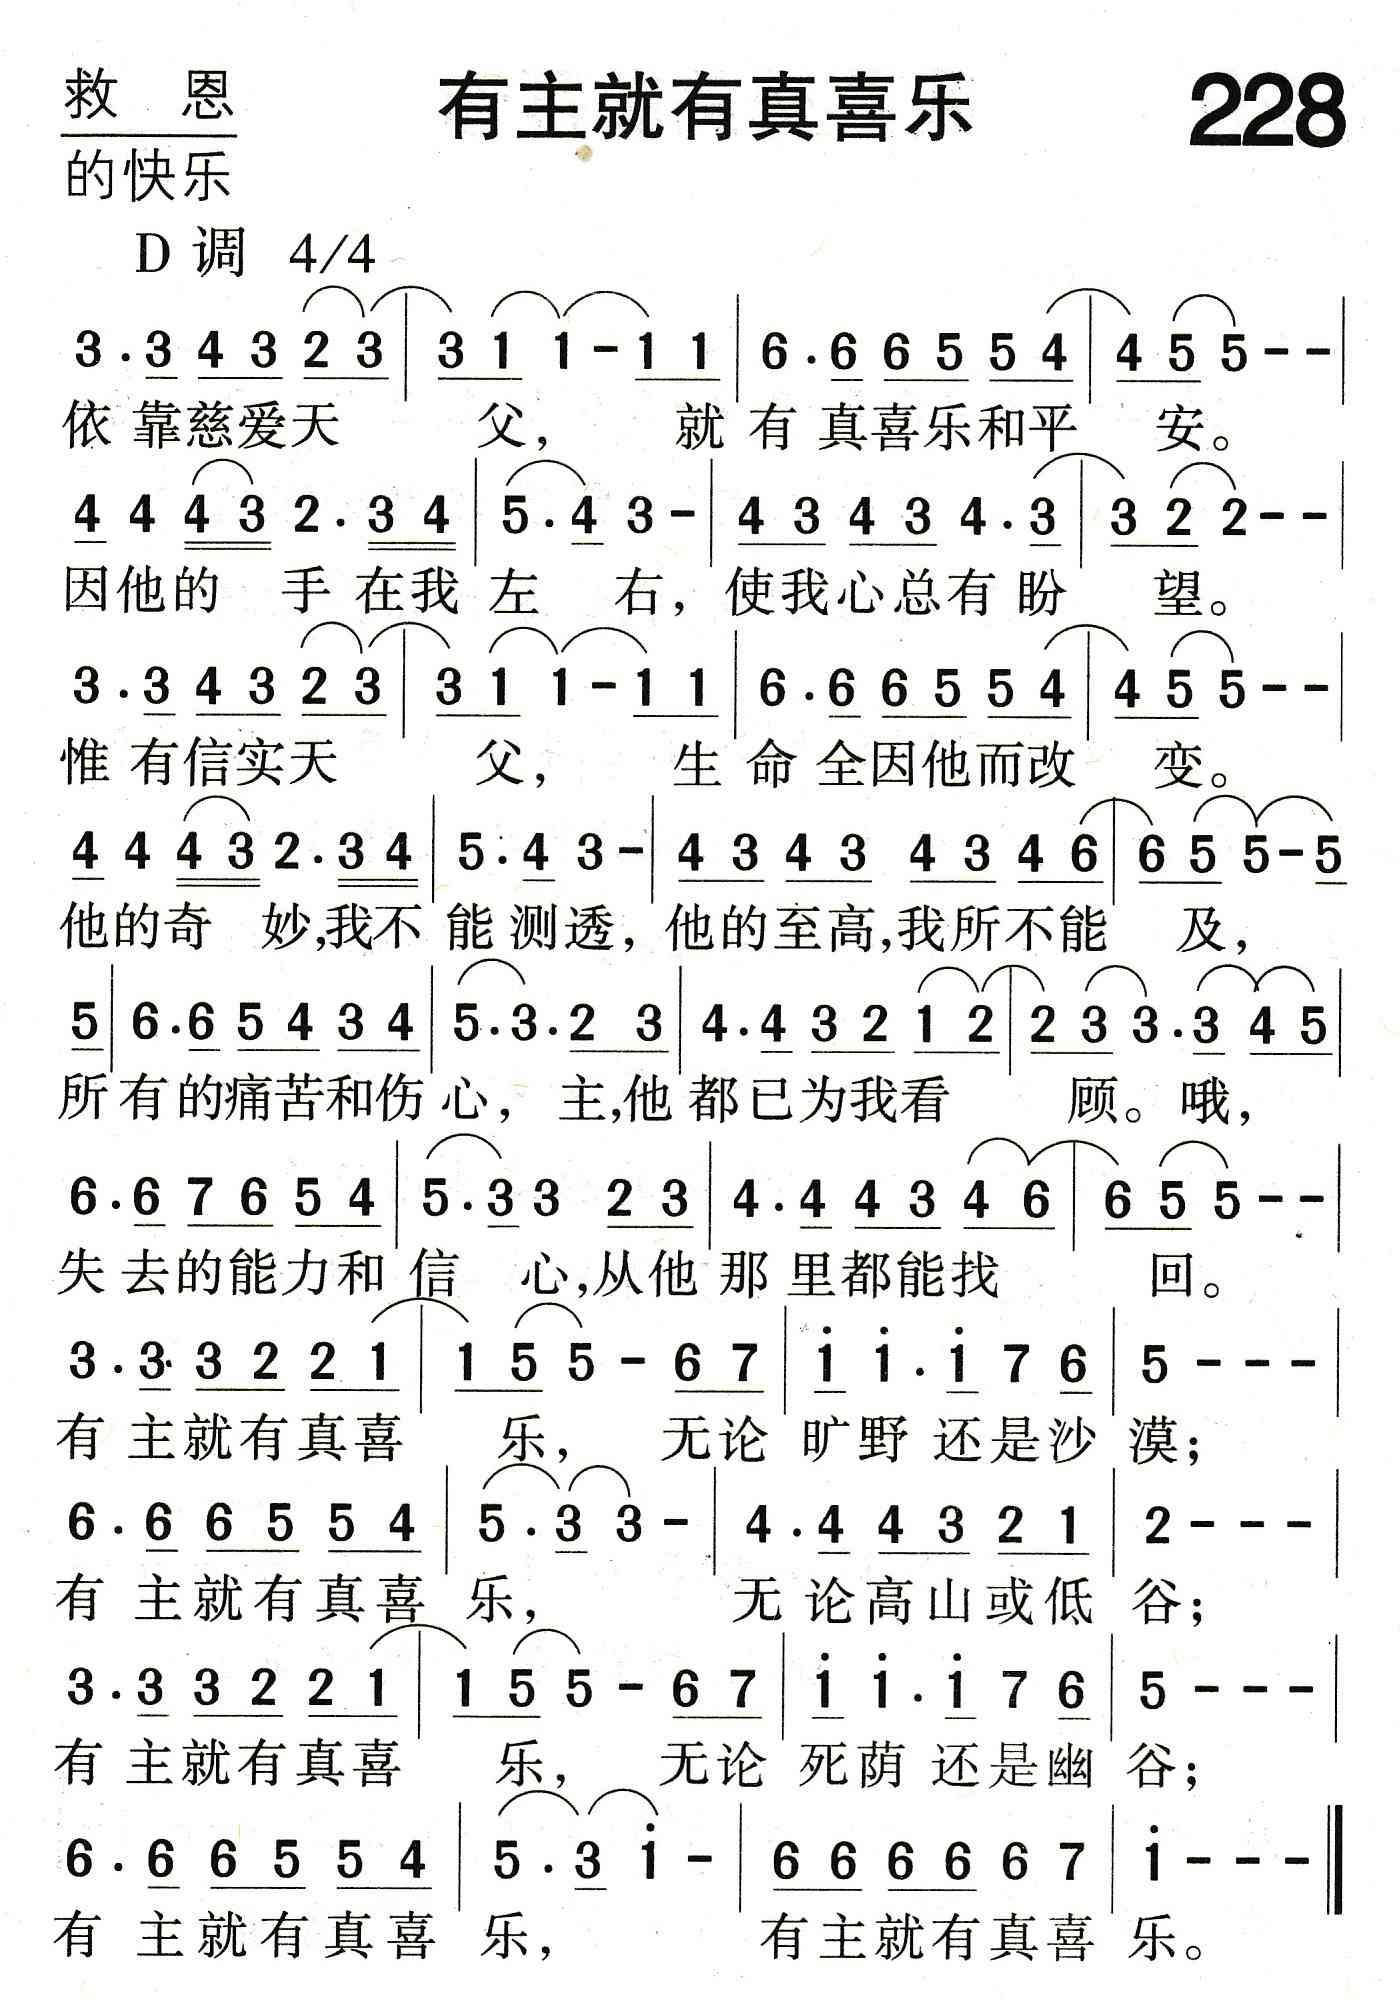 救 恩
的快乐
有主就有真喜乐
228
D 调 4/4
3 . 3 4 3 2 3 | 3 1 1 - 1 1 | 6 . 6 6 5 5 4 | 4 5 5 - - |
依 靠慈爱天 父， 就 有 真喜乐和平 安。
4 4 4 3 2 . 3 4 | 5 . 4 3 - | 4 3 4 3 4 . 3 | 3 2 2 - - |
因他的 手 在我 左 右，使我心总有 盼 望。
3 . 3 4 3 2 3 | 3 1 1 - 1 1 | 6 . 6 6 5 5 4 | 4 5 5 - - |
惟 有信实天 父， 生 命 全因他而改 变。
4 4 4 3 2 . 3 4 | 5 . 4 3 - | 4 3 4 3 4 3 4 6 | 6 5 5 - 5
他的奇 妙,我不 能 测透，他的至高,我所不能 及，
5 | 6 . 6 5 4 3 4 | 5 . 3 . 2 3 | 4 . 4 3 2 1 2 | 2 3 3 . 3 4 5 |
所 有 的痛苦和伤 心， 主,他 都已为我看 顾。哦，
6 . 6 7 6 5 4 | 5 . 3 3 2 3 | 4 . 4 4 3 4 6 | 6 5 5 - - |
失 去的能力和 信 心,从他 那 里都能找 回。
3 . 3 . 3 2 2 1 | 1 5 5 - 6 7 | i i . i 7 6 | 5 - - - |
有 主就有真喜 乐， 无论 旷野 还是沙 漠；
6 . 6 6 5 5 4 | 5 . 3 3 - | 4 . 4 4 3 2 1 | 2 - - - |
有 主就有真喜 乐， 无 论高山或低 谷；
3 . 3 3 2 2 1 | 1 5 5 - 6 7 | i i . i 7 6 | 5 - - - |
有 主就有真喜 乐， 无论 死荫 还是幽 谷；
6 . 6 6 5 5 4 | 5 . 3 i - | 6 6 6 6 6 7 | i - - - ‖
有 主就有真喜 乐， 有主就有真喜 乐。